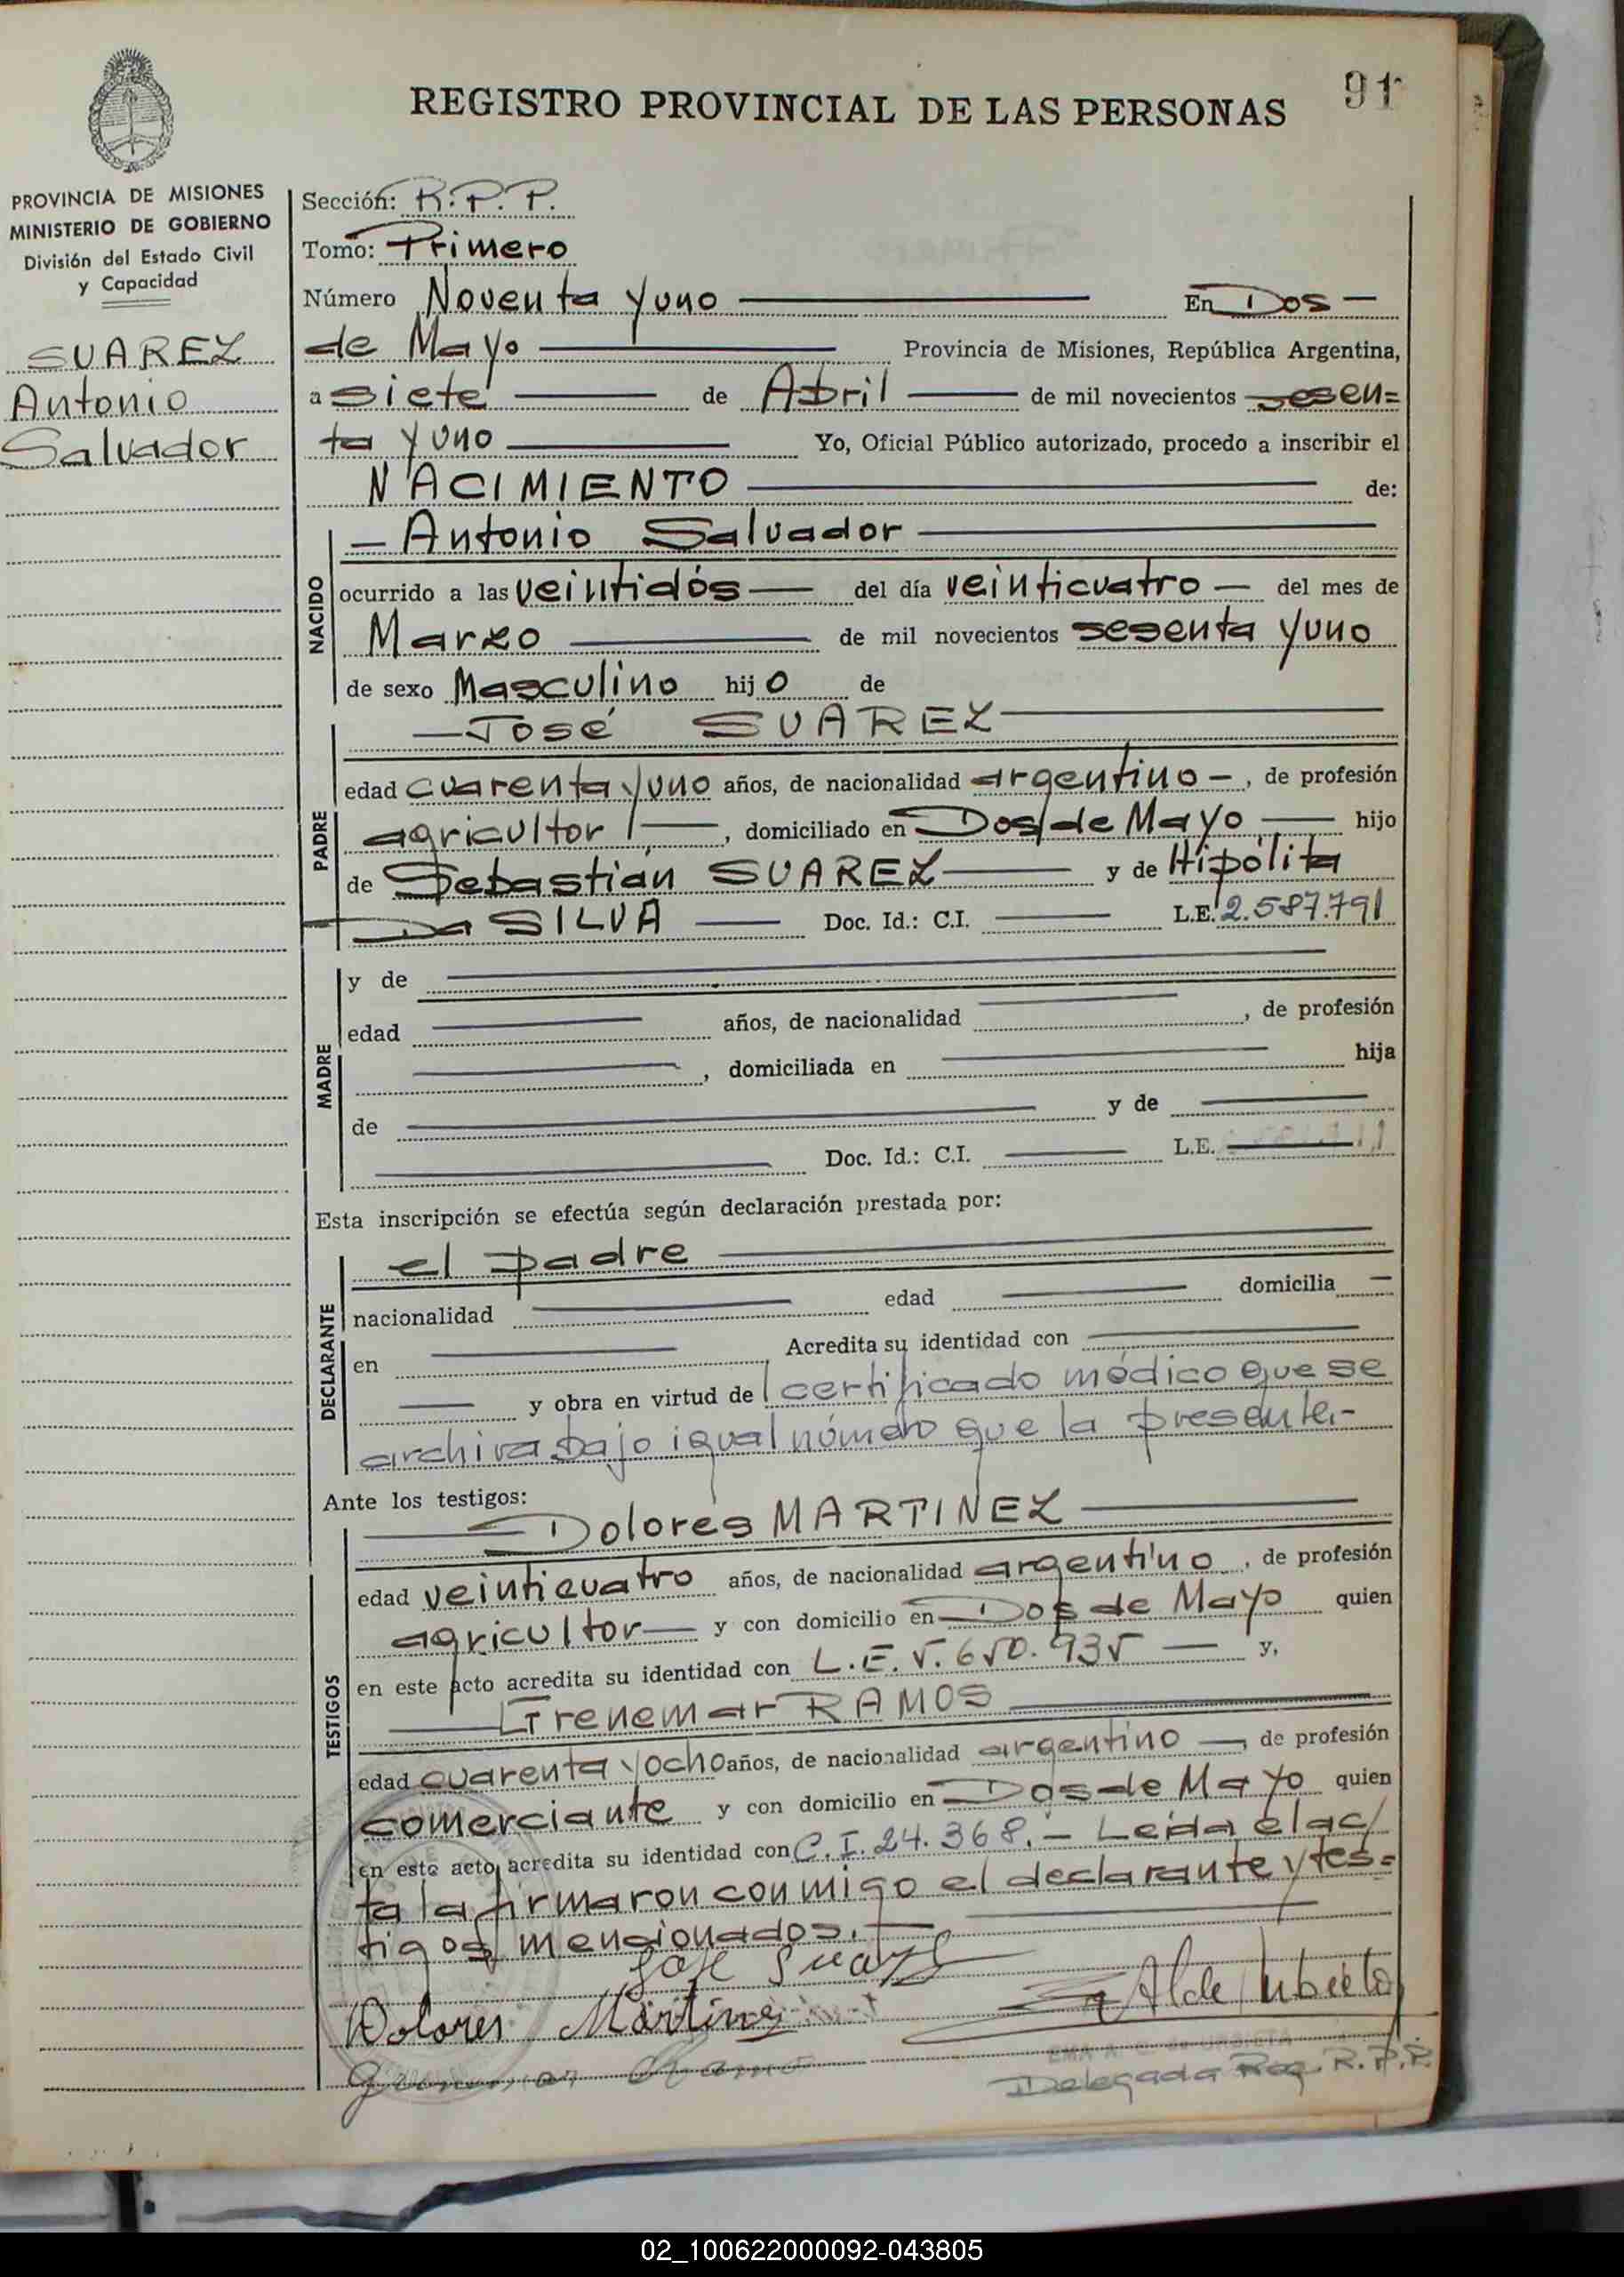 91
REGISTRO PROVINCIAL DE LAS PERSONAS
PROVINCIA DE MISIONES
MINISTERIO DE GOBIERNO
División del Estado Civil
y Capacidad
SUAREZ
Antonio
Salvador
Sección: R.P.P.
Tomo: Primero
Número Noventa y uno En Dos
de Mayo Provincia de Misiones, República Argentina,
a siete de Abril de mil novecientos sesen=
ta y uno Yo, Oficial Público autorizado, procedo a inscribir el
NACIMIENTO de:
NACIDO
Antonio Salvador
ocurrido a las veintidós del día veinticuatro del mes de
Marzo de mil novecientos sesenta y uno
de sexo Masculino hijo de
PADRE
José SUAREZ
edad cuarenta y uno años, de nacionalidad argentino, de profesión
agricultor, domiciliado en Dos de Mayo hijo
de Sebastián SUAREZ y de Hipólita
Da SILVA Doc. Id.: C.I. L.E. 2.587.791
MADRE
y de
edad años, de nacionalidad , de profesión
, domiciliada en hija
de y de
Doc. Id.: C.I. L.E.
Esta inscripción se efectúa según declaración prestada por:
DECLARANTE
el padre
nacionalidad edad domicilia
en Acredita su identidad con
y obra en virtud de certificado médico que se
archiva bajo igual número que la presente.-
Ante los testigos:
TESTIGOS
Dolores MARTINEZ
edad veinticuatro años, de nacionalidad argentino, de profesión
agricultor y con domicilio en Dos de Mayo quien
en este acto acredita su identidad con L.E. 5.650.935 y,
Grenemar RAMOS
edad cuarenta y ocho años, de nacionalidad argentino, de profesión
comerciante y con domicilio en Dos de Mayo quien
en este acto acredita su identidad con C.I. 24.368.- Leida el ac/
ta la firmaron conmigo el declarante y tes=
tigos mencionados.
José Suarez
Dolores Martinez
Delegada Reg. R.P.P.
02_100622000092-043805